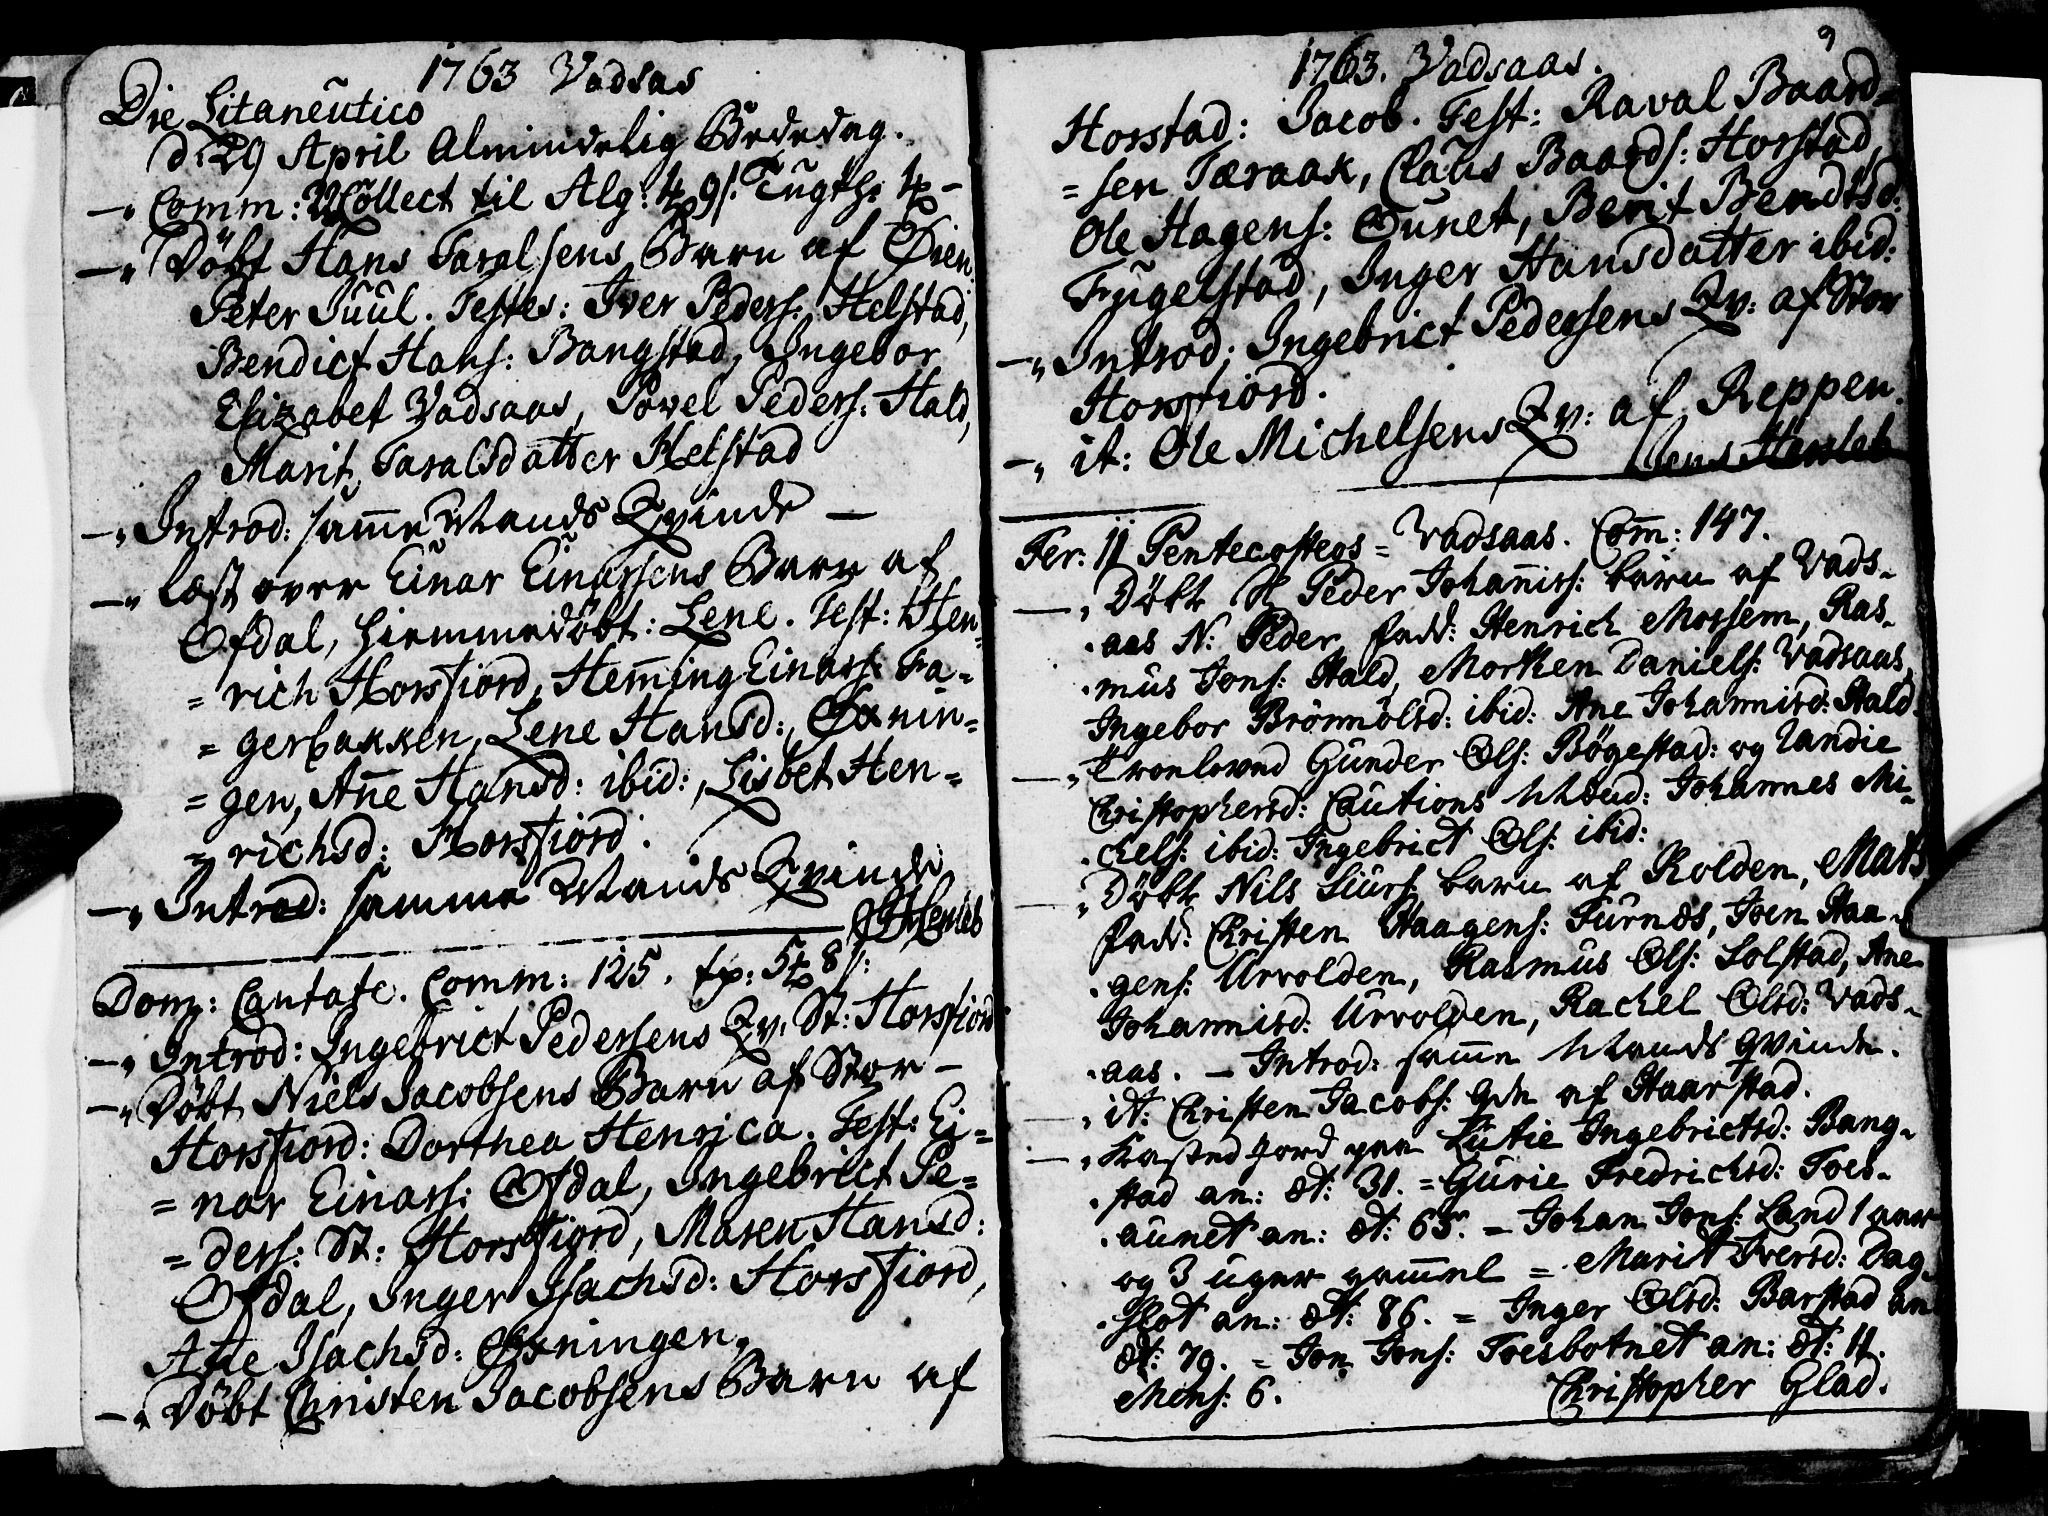 1763 Vadsas
Die Litaneutico
d: 29 April Almindelig Bededag.
—" Comm: Collect til Alg: 9 s. Tugth:
—" Döbt Hans Taralsens Barn af Öien.
Peter Juul. Testes: Iver Peders: Helstad,
Bendict Hans: Bangstad, Ingebor
Elizabet Vadsaas, Povel Peders: Hald,
Marit Taralsdatter Helstad
—" Introd: samme Mands Qvinde —
—" Læst over Einar Einarsens Barn af
Ofdal, hiemmedöbt: Lene. Test: Hen=
=rich Horsfiord, Hem̄ing Einars: Fa=
=gerbakken, Lene Hansd: Öxnin=
=gen, Añe Hansd: ibid:, Lisbet Hen=
=richsd: Horsfiord.
—" Introd: samme Mands Qvinde
Dom: Cantate. Comm: 125. 8 s:
—" Introd: Ingebrict Pedersens Qv: St: Horsfiord
—" Döbt Niels Jacobsens Barn af Stor-
Horsfiord: Dorthea Henrica. Test: Ei=
=nar Einars: Ofdal, Ingebrict Pe=
=ders: St: Horsfiord, Maren Hansd:
Ofdal, Inger Isachsd: Horsfiord,
Isachsd: Öxningen,
—" Döbt Christen Jacobsens Barn af
9
1763. Vadsaas.
Horstad: Jacob. Test: Raval Baard=
=sen Tæraak, Claus Baards: Horstad,
Ole Hagens: Ounet, Berit Bendtsd:
Fugelstad, Inger Hansdatter ibid:
—" Introd: Ingebrict Pedersens Qv: af Stor
Horsfiord.
—" it: Ole Michelsens Qv: af Reppen.
Jens Hersleb
Fer: II Pentecosteos = Vadsaas. Com̄: 147.
—" Döbt Peder Johannis: barn af Vads-
-aas N: Peder fadd: Henrich Mossem, Ras-
-mus Jons: Hald, Morten Daniels: Vadsaas,
Ingebor Brönnolsd: ibid: Ane Johannisd: Hald.
—" Troeloved Gunder Ols: Bögestad: og Vandie
Christophersd: Cautions Mænd: Johannes Mi-
-chels: ibid: Ingebrict Ols: ibid:
—" Döbt Nils Siurs: barn af Kolden, Mats
fadd: Christen Haagens: Furnes, Joen Haa-
-gens: Urvolden, Rasmus Ols: Solstad, Ane
Johannisd: Urvolden, Rachel Olsd: Vads-
-aas. — Introd: sam̄e Mands Qvinde.
—" it: Christen Jacobs: Qv af Haarstad.
—" Kasted Jord paa Lutie Ingebrictsd: Bang-
-stad an: æt: 31. = Gurie Fredrichsd: Toes-
-aunet an: æt: 65. = Johan Jons: Land 1 aar
og 3 uger gam̄el = Marit Iversd: Dag-
-slot an: æt: 86. = Inger Olsd: Barstad an:
æt: 79. = Jon Jons: Toesbotnet an: æt: 11.
Mens: 6. Christopher Glad.